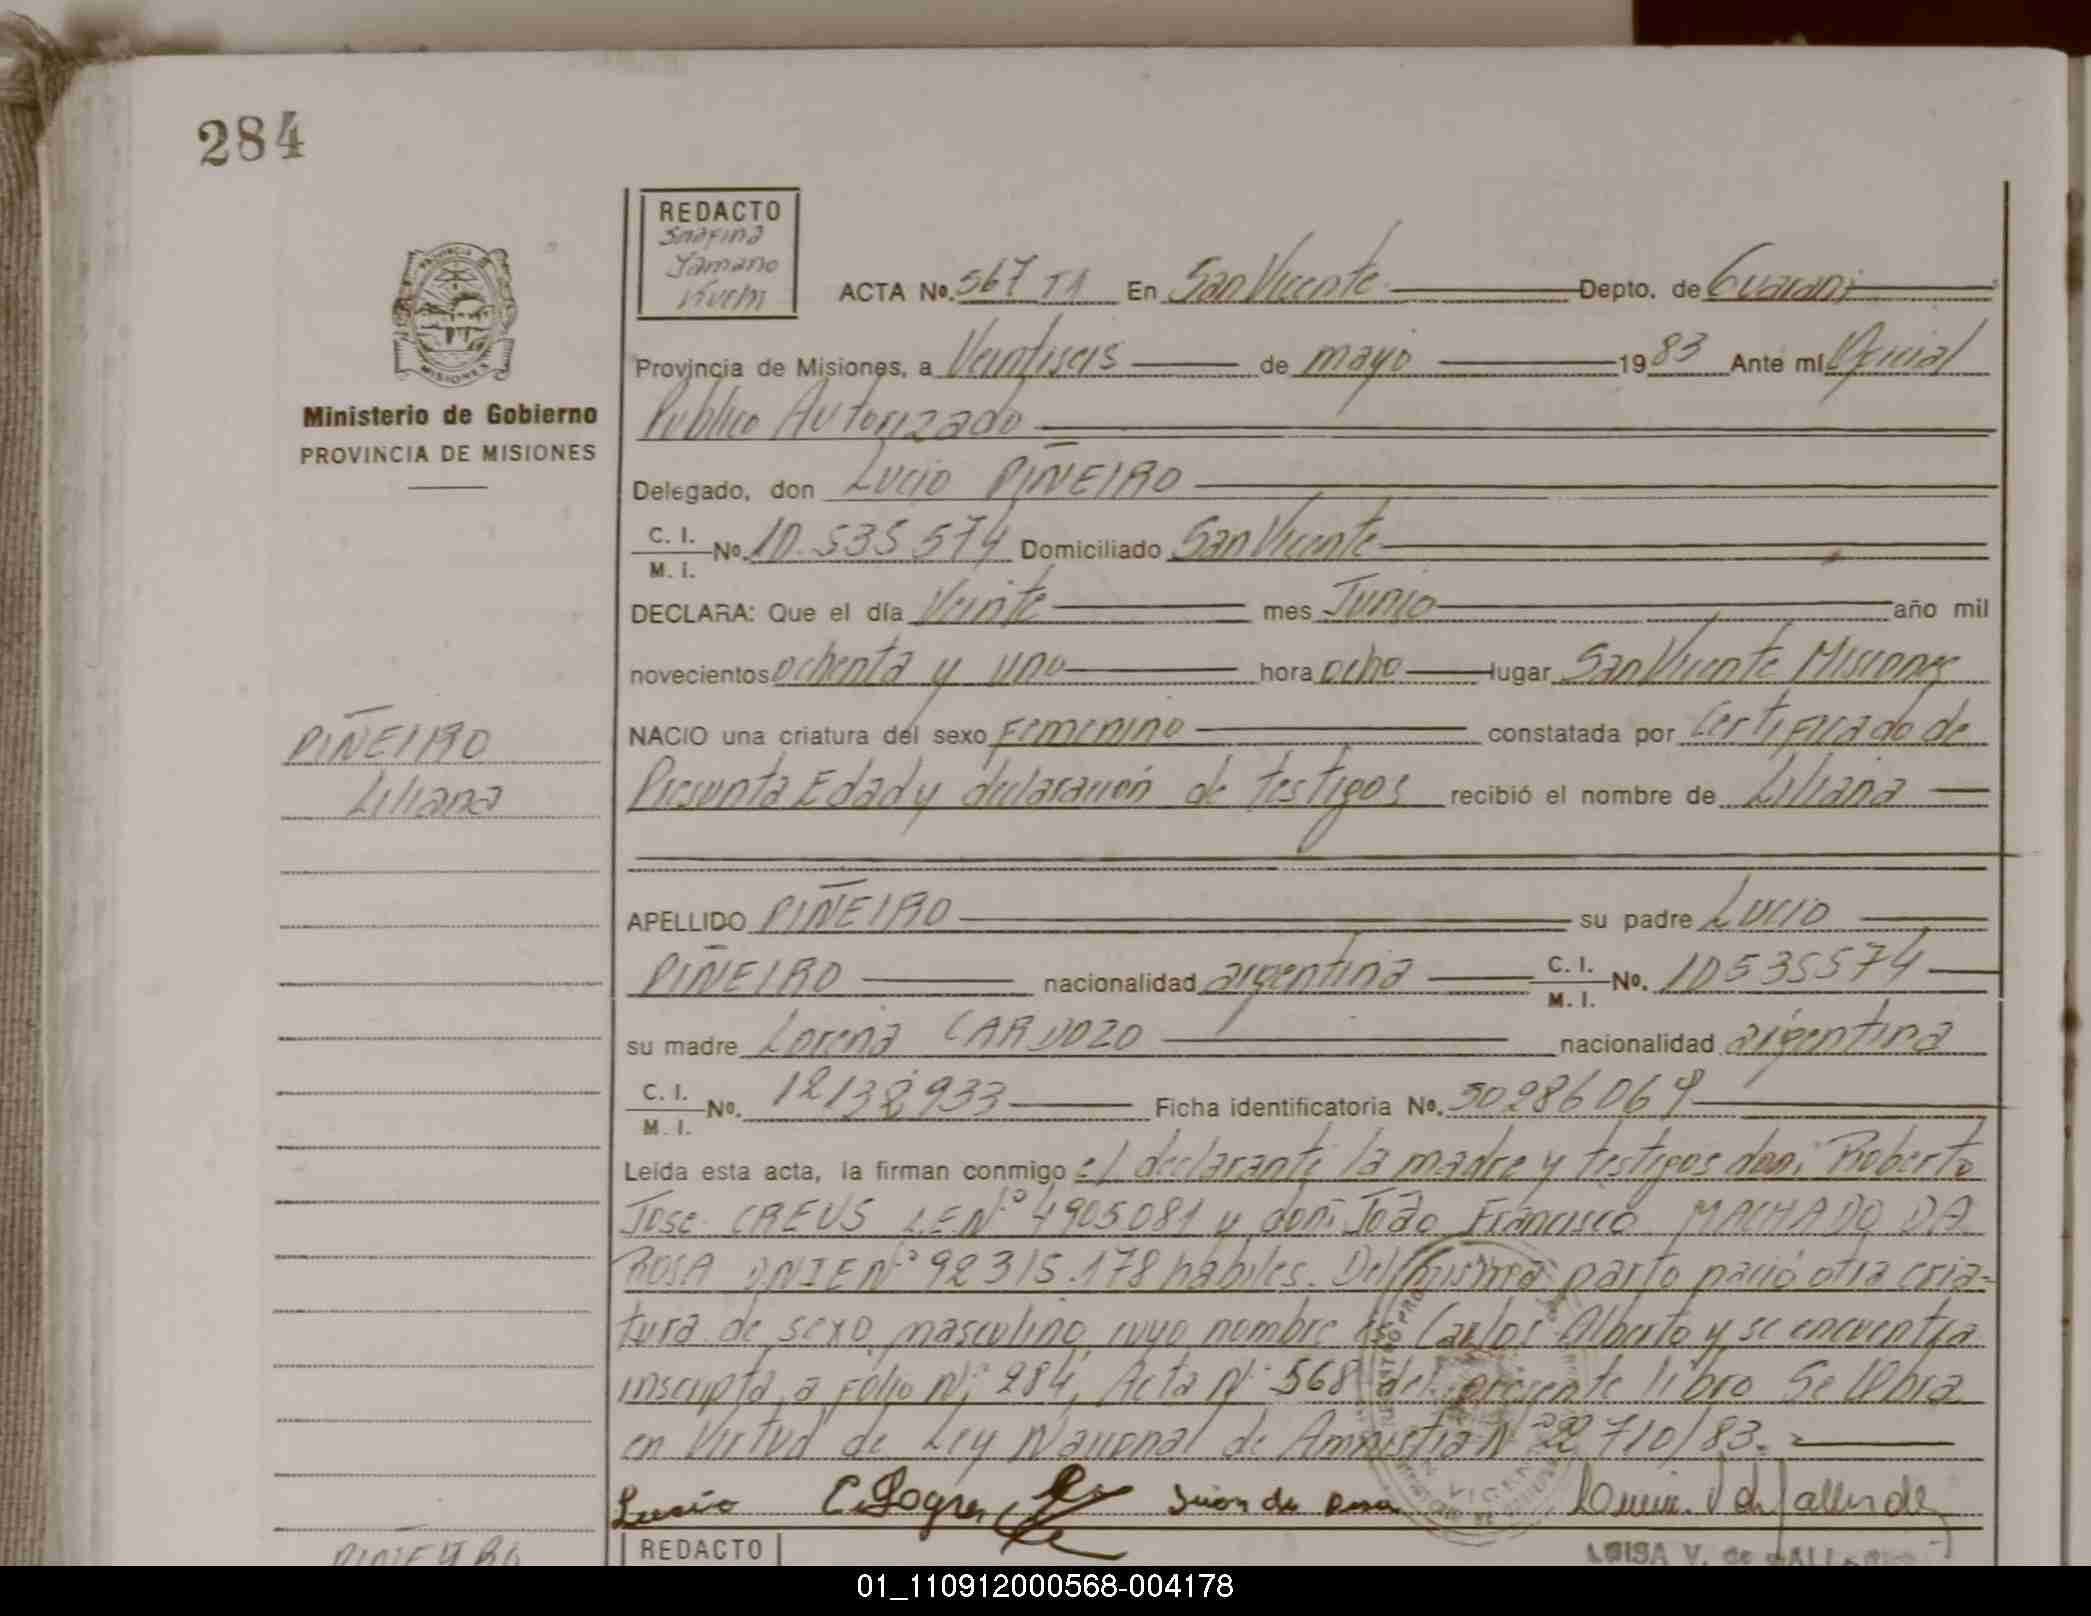 284
REDACTO
ACTA No. 567 T1 En San Vicente Depto. de Guarani
Provincia de Misiones, a Veintiseis de mayo 1983 Ante mí Oficial
Publico Autorizado
Ministerio de Gobierno
PROVINCIA DE MISIONES
Delegado, don Lucio PIÑEIRO
C. I.
M. I. No. 10.535.574 Domiciliado San Vicente
DECLARA: Que el día Veinte mes Junio año mil
novecientos ochenta y uno hora ocho lugar San Vicente Misiones
NACIO una criatura del sexo Femenino constatada por Certificado de
Presunta Edad y declaración de testigos recibió el nombre de Liliana
PIÑEIRO
Liliana
APELLIDO PIÑEIRO su padre Lucio
PIÑEIRO nacionalidad argentina C. I.
M. I. No. 10535574
su madre Lorena CARDOZO nacionalidad argentina
C. I.
M. I. No. 12138933 Ficha identificatoria No. 30286064
Leida esta acta, la firman conmigo el declarante la madre y testigos don: Roberto
Jose CREUS L.E.Nº 4905081 y don: João Francisco MACHADO DA
ROSA DNIE Nº 92315.178 habiles. Del mismo parto nació otra cria-
tura de sexo masculino cuyo nombre es Carlos Alberto y se encuentra
inscripta a Folio Nº 284, Acta Nº 568 del presente libro Se labra
en Virtud de Ley Nacional de Amnistia Nº 22710/83.
Lucio
REDACTO
PIÑEIRO
LUISA V. de
01_110912000568-004178